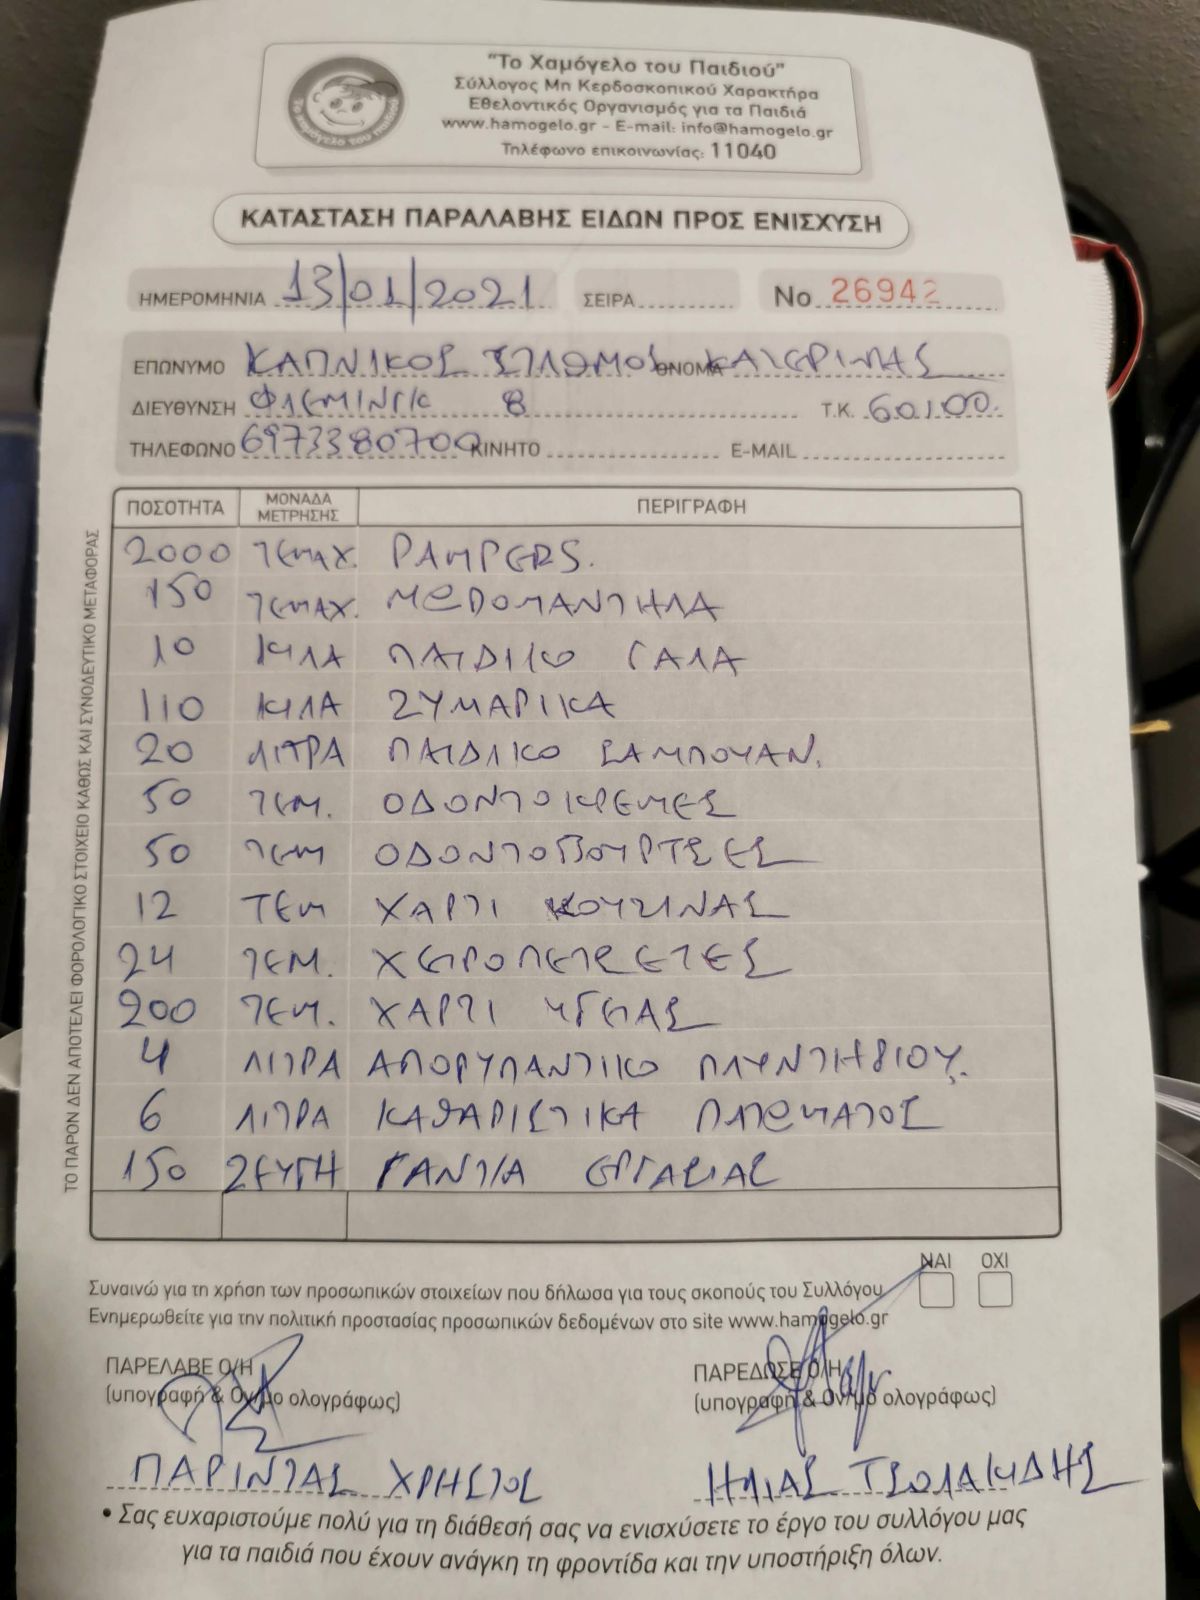 το χαμόγελο του παιδιού
"Το Χαμόγελο του Παιδιού"
Σύλλογος Μη Κερδοσκοπικού Χαρακτήρα
Εθελοντικός Οργανισμός για τα Παιδιά
www.hamogelo.gr - E-mail: info@hamogelo.gr
Τηλέφωνο επικοινωνίας: 11040
ΚΑΤΑΣΤΑΣΗ ΠΑΡΑΛΑΒΗΣ ΕΙΔΩΝ ΠΡΟΣ ΕΝΙΣΧΥΣΗ
ΗΜΕΡΟΜΗΝΙΑ 13/01/2021 ΣΕΙΡΑ No 26942
ΕΠΩΝΥΜΟ ΚΑΠΝΙΚΟΣ ΣΤΑΘΜΟΣ ΟΝΟΜΑ ΚΑΤΕΡΙΝΗΣ
ΔΙΕΥΘΥΝΣΗ ΦΛΕΜΙΝΓΚ 8 Τ.Κ. 60100.
ΤΗΛΕΦΩΝΟ 6973380700 ΚΙΝΗΤΟ E-MAIL
ΠΟΣΟΤΗΤΑ ΜΟΝΑΔΑ ΜΕΤΡΗΣΗΣ ΠΕΡΙΓΡΑΦΗ
2000 ΤΕΜΑΧ. PAMPERS.
150 ΤΕΜΑΧ. ΜΩΡΟΜΑΝΤΗΛΑ
10 ΚΙΛΑ ΠΑΙΔΙΚΟ ΓΑΛΑ
110 ΚΙΛΑ ΖΥΜΑΡΙΚΑ
20 ΛΙΤΡΑ ΠΑΙΔΙΚΟ ΣΑΜΠΟΥΑΝ.
50 ΤΕΜ. ΟΔΟΝΤΟΚΡΕΜΕΣ
50 ΤΕΜ ΟΔΟΝΤΟΒΟΥΡΤΣΕΣ
12 ΤΕΜ ΧΑΡΤΙ ΚΟΥΖΙΝΑΣ
24 ΤΕΜ. ΧΕΙΡΟΠΕΤΣΕΤΕΣ
200 ΤΕΜ. ΧΑΡΤΙ ΥΓΕΙΑΣ
4 ΛΙΤΡΑ ΑΠΟΡΥΠΑΝΤΙΚΟ ΠΛΥΝΤΗΡΙΟΥ.
6 ΛΙΤΡΑ ΚΑΘΑΡΙΣΤΙΚΑ ΠΑΤΩΜΑΤΟΣ
150 ΖΕΥΓΗ ΓΑΝΤΙΑ ΕΡΓΑΣΙΑΣ
ΤΟ ΠΑΡΟΝ ΔΕΝ ΑΠΟΤΕΛΕΙ ΦΟΡΟΛΟΓΙΚΟ ΣΤΟΙΧΕΙΟ ΚΑΘΩΣ ΚΑΙ ΣΥΝΟΔΕΥΤΙΚΟ ΜΕΤΑΦΟΡΑΣ
ΝΑΙ ΟΧΙ
Συναινώ για τη χρήση των προσωπικών στοιχείων που δήλωσα για τους σκοπούς του Συλλόγου
Ενημερωθείτε για την πολιτική προστασίας προσωπικών δεδομένων στο site www.hamogelo.gr
ΠΑΡΕΛΑΒΕ Ο/Η ΠΑΡΕΔΩΣΕ Ο/Η
(υπογραφή & Ον/μο ολογράφως) (υπογραφή & Ον/μο ολογράφως)
ΠΑΡΙΝΤΑΣ ΧΡΗΣΤΟΣ ΗΛΙΑΣ ΤΣΟΛΑΚΙΔΗΣ
• Σας ευχαριστούμε πολύ για τη διάθεσή σας να ενισχύσετε το έργο του συλλόγου μας
για τα παιδιά που έχουν ανάγκη τη φροντίδα και την υποστήριξη όλων.